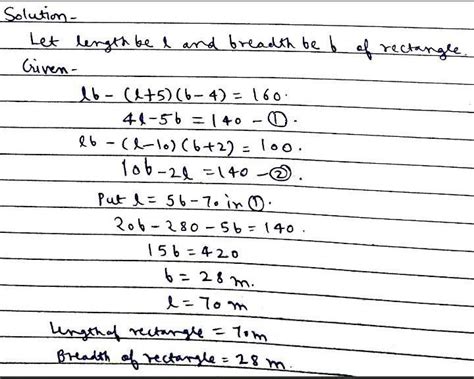 Solution-
Let length be l and breadth be b of rectangle.
Given-
lb - (l+5)(b-4) = 160.
4l-5b = 140 - ①.
lb - (l-10)(b+2) = 100.
10b-2l = 140 - ②.
Put l = 5b-70 in ①.
20b-280-5b = 140.
15b = 420
b = 28 m.
l = 70 m
Length of rectangle = 70m
Breadth of rectangle = 28 m.